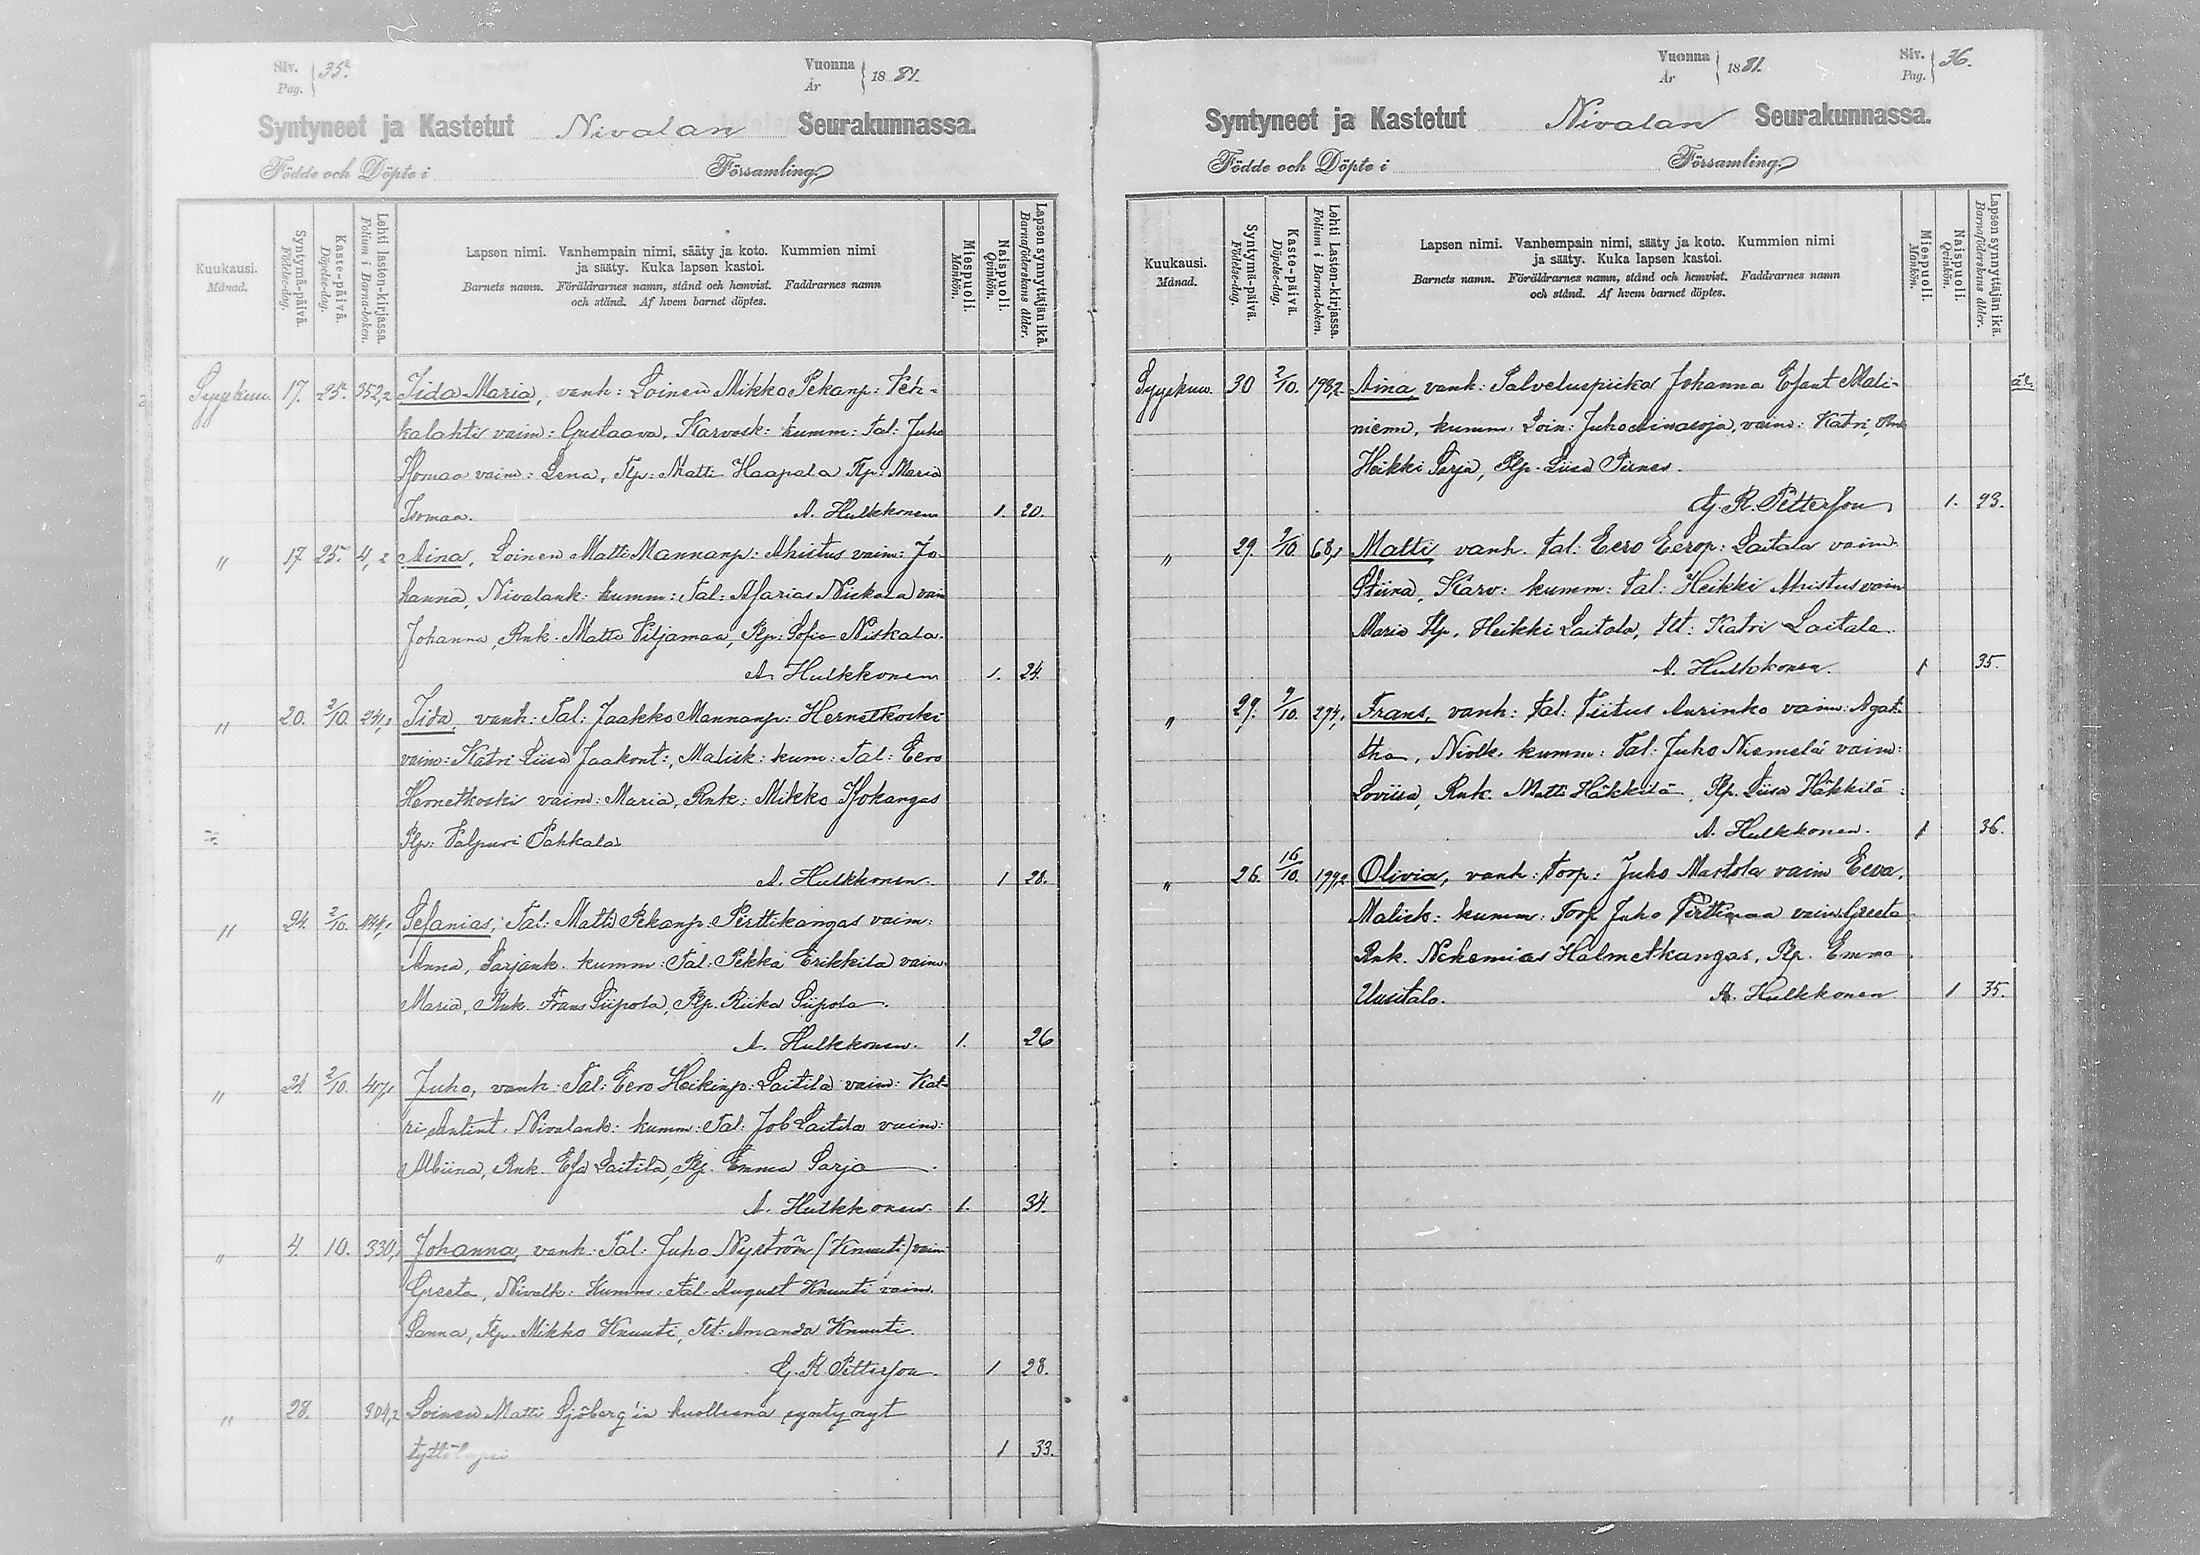 Siv. Pag. 35.
Vuonna År 1881.
Syntyneet ja Kastetut Nivalan Seurakunnassa.
Födde och Döpte i Församling.
Kuukausi. Månad.
Syntymä-päivä. Födelse-dag.
Kaste-päivä. Döpelse-dag.
Lehti lasten-kirjassa. Folium i Barna-boken.
Lapsen nimi. Vanhempain nimi, sääty ja koto. Kummien nimi
ja sääty. Kuka lapsen kastoi.
Barnets namn. Föräldrarnes namn, stånd och hemvist. Faddrarnes namn
och stånd. Af hvem barnet döptes.
Miespuoli. Mankön.
Naispuoli. Qvinkön.
Lapsen synnyttäjän ikä. Barnaföderskans ålder.
Syyskuu. 17. 25. 352,2 Iida Maria, vanh: Loinen Mikko Pekanp: Peh-
kalahti vaim: Gustaava, Karvosk: kumm: Tal: Juho
Isomaa vaim: Lena, Plp: Matti Haapala Plp: Maria
Isomaa. A. Hulkkonen 1. 20.
" 17 25. 4,2 Aina, Loinen Matti Mannanp: Ahistus vaim: Jo-
hanna, Nivalank: kumm: Tal: Asarias Niskala vaim
Johanna, Rnk. Matti Viljamaa, Plp: Sofia Niskala.
A. Hulkkonen 1. 24.
" 20. 2/10. 241,1 Iida, vanh: Tal: Jaakko Mannanp: Hernetkoski
vaim: Katri Liisa Jaakont:, Malisk: kum: Tal: Eero
Hernetkoski vaim: Maria, Rnk: Mikko Isokangas
Plp: Valpuri Pahkala
A. Hulkkonen. 1 28.
" 24. 2/10. Sefanias, Tal: Matti Pekanp: Perttikangas vaim:
Anna, Sarjank. kumm: Tal: Pekka Erikkila vaim.
Maria, Rnk. Frans Siipola, Plp. Riika Siipola.
A. Hulkkonen. 1. 26
" 24. 2/10. 407,1 Juho, vanh: Tal: Eero Heikinp: Laitila vaim: Kat-
ri Antint. Nivalank: kumm: Tal: Job Laitila vaim:
Albiina, Rnk. Esa Laitila, Plp. Emma Sarja.
A. Hulkkonen. 1. 34.
" 4. 10. 330, Johanna, vanh: Tal: Juho Nyström (Knuuti) vaim
Greeta, Nivalk: Kumm: Tal: August Knuuti vaim.
Sanna, Plp. Mikko Knuuti, Tlt: Amanda Knuuti.
G. R Petterson. 1 28.
" 28. 304,2 Loinen Matti Sjöberg'in kuolleena syntynyt
tyttölapsi 1 33.
Vuonna År 1881.
Siv. Pag. 36.
Syntyneet ja Kastetut Nivalan Seurakunnassa.
Födde och Döpte i Församling.
Kuukausi. Månad.
Syntymä-päivä. Födelse-dag.
Kaste-päivä. Döpelse-dag.
Lehti Lasten-kirjassa. Folium i Barna-boken.
Lapsen nimi. Vanhempain nimi, sääty ja koto. Kummien nimi
ja sääty. Kuka lapsen kastoi.
Barnets namn. Föräldrarnes namn, stånd och hemvist. Faddrarnes namn
och stånd. Af hvem barnet döptes.
Miespuoli. Mankön.
Naispuoli. Qvinkön.
Lapsen synnyttäjän ikä. Barnaföderskans ålder.
Syyskuu. 30 2/10. 178,2 Aina, vanh: Palveluspiika Johanna Esant. Mali-
niemi, kumm: Loin: Juho Ainasoja, vaim: Katri, Rnk
Heikki Sarja, Plp. Liisa Pirnes.
G. R. Petterson 1. 23.
" 29. 9/10. 68,1 Matti, vanh. Tal: Eero Eerop: Laitala vaim.
Stiina, Karv: kumm: Tal: Heikki Ahistus vaim
Maria Plp. Heikki Laitala, Tlt: Katri Laitala.
A. Hulkkonen. 1 35.
" 29. 9/10. 274, Frans, vanh: Tal: Tiitus Aurinko vaim: Agat-
tha, Nivlk. kumm: Tal: Juho Niemelä vaim:
Loviisa, Rnk. Matti Häkkilä, Plp. Liisa Häkkilä.
A. Hulkkonen. 1 36.
" 26. 16/10. 197,2 Olivia, vanh: Torp: Juho Mastola vaim Eeva,
Malisk: kumm: Torp Juho Perttimaa vaim Greeta
Rnk. Nehemias Halmetkangas, Plp. Emma
Uusitalo. A. Hulkkonen 1 35.